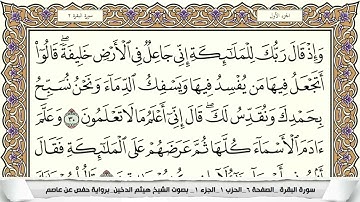 الجزء الأول
سورة البقرة ٢
وَإِذْ قَالَ رَبُّكَ لِلْمَلَٰٓئِكَةِ إِنِّي جَاعِلٌ فِي ٱلْأَرْضِ خَلِيفَةً ۖ قَالُوٓا۟
أَتَجْعَلُ فِيهَا مَن يُفْسِدُ فِيهَا وَيَسْفِكُ ٱلدِّمَآءَ وَنَحْنُ نُسَبِّحُ
بِحَمْدِكَ وَنُقَدِّسُ لَكَ ۖ قَالَ إِنِّيٓ أَعْلَمُ مَا لَا تَعْلَمُونَ ٣٠ وَعَلَّمَ
ءَادَمَ ٱلْأَسْمَآءَ كُلَّهَا ثُمَّ عَرَضَهُمْ عَلَى ٱلْمَلَٰٓئِكَةِ فَقَالَ
سورة البقرة _ الصفحة ٦ _ الحزب ١ _ الجزء ١ _ بصوت الشيخ هيثم الدخين _ برواية حفص عن عاصم